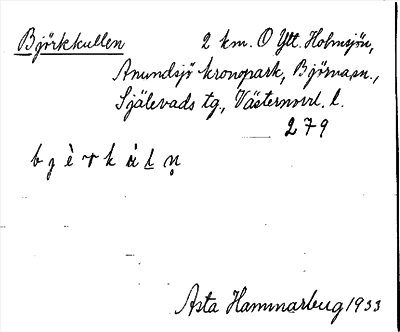 Björkkullen 2 km. O Ytt. Holmsjön,
Anundsjö kronopark, Björna sn.,
Själevads tg., Västernorrl. l.
279
Asta Hammarberg 1933